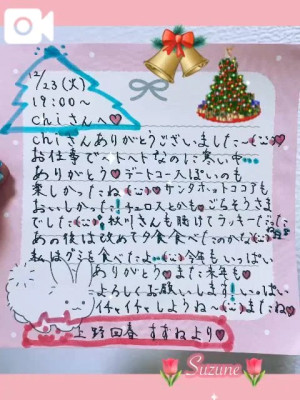 12/23(火)
19:00〜
chiさんへ♡
chiさんありがとうございました
お仕事でヘトヘトなのに寒い中…
ありがとう♡デートコース入ぽいのも
楽しかったね サンタホットココアも
おいしかった!チュロスとかも♡ごちそうさま
でした 秋川さんも聴けてラッキーだった
あの後は改めて夕食食べたのかな
私はグミを食べたよ 今年もいっぱい
ありがとう♡また来年も
よろしくお願いします!いっぱい
イチャイチャしようね またね♡
上野回春 すずねより♡
Suzune